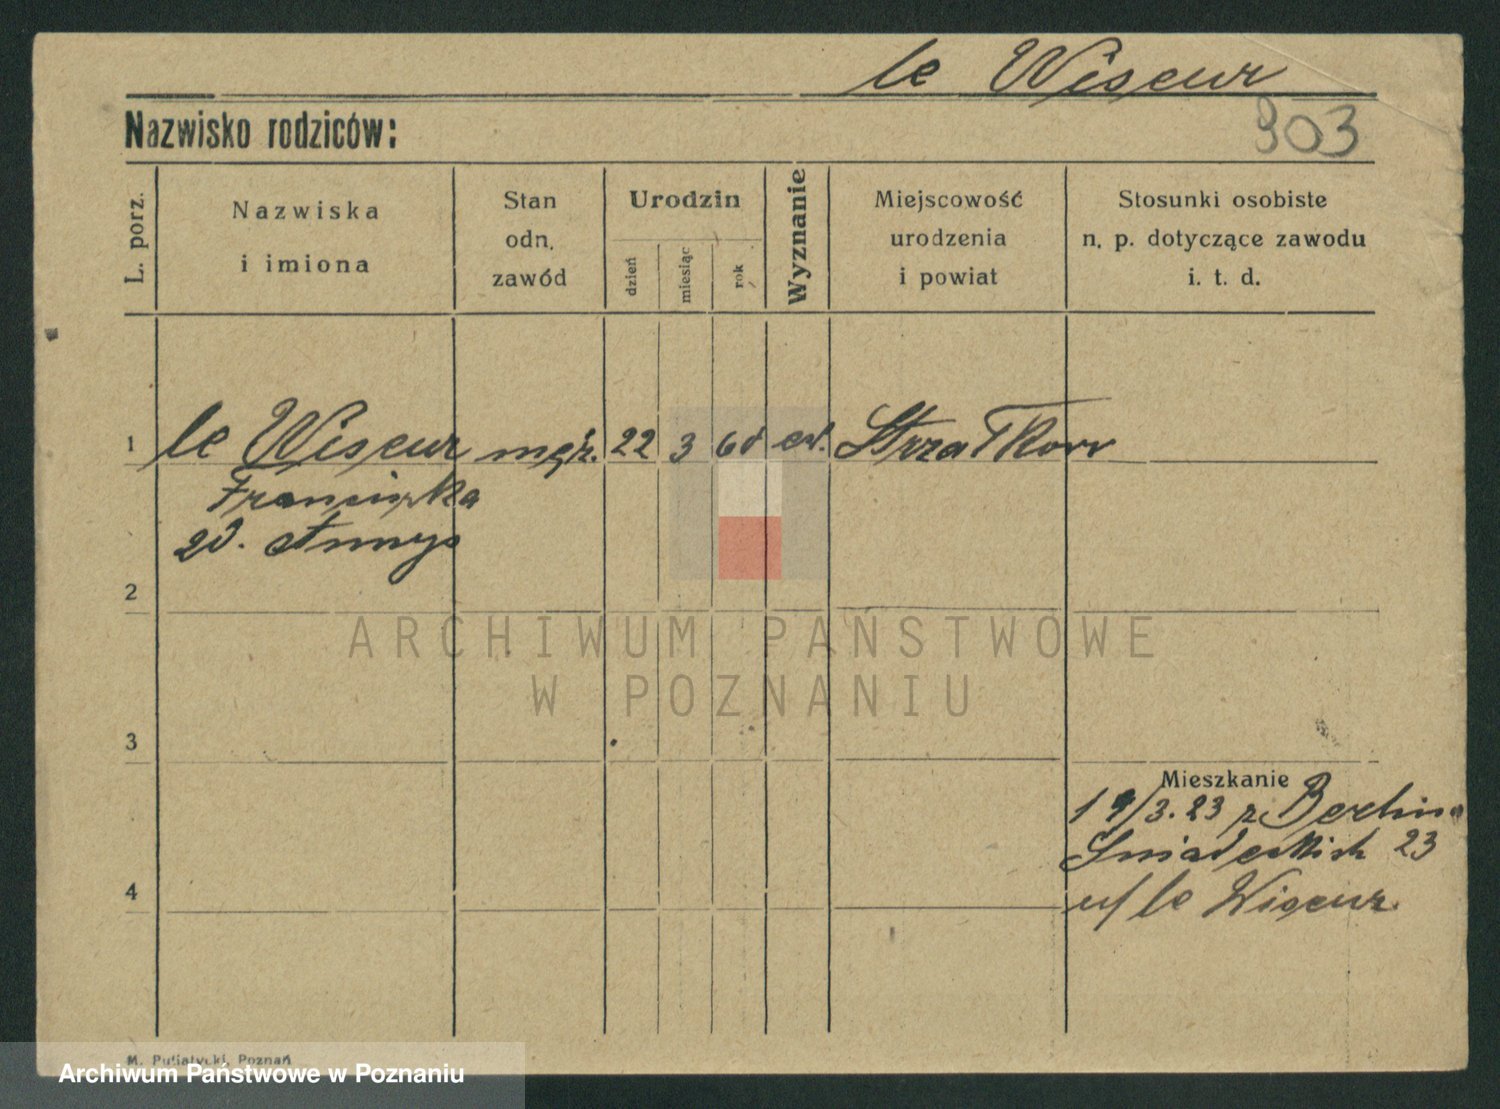 le Wiseur
Nazwisko rodziców:
903
L. porz.
Nazwiska
i imiona
Stan
odn.
zawód
Urodzin
dzień
miesiąc
rok
Wyznanie
Miejscowość
urodzenia
i powiat
Stosunki osobiste
n. p. dotyczące zawodu
i. t. d.
1 le Wiseur męż. 22 3 ew. Strzałkow
Franciszka
zd.
2
ARCHIWUM PAŃSTWOWE
W POZNANIU
3
Mieszkanie
19/3.23 z Berlina
Śniadeckich 23
4
u/ le Wiseur
M. Putiatycki, Poznań
Archiwum Państwowe w Poznaniu